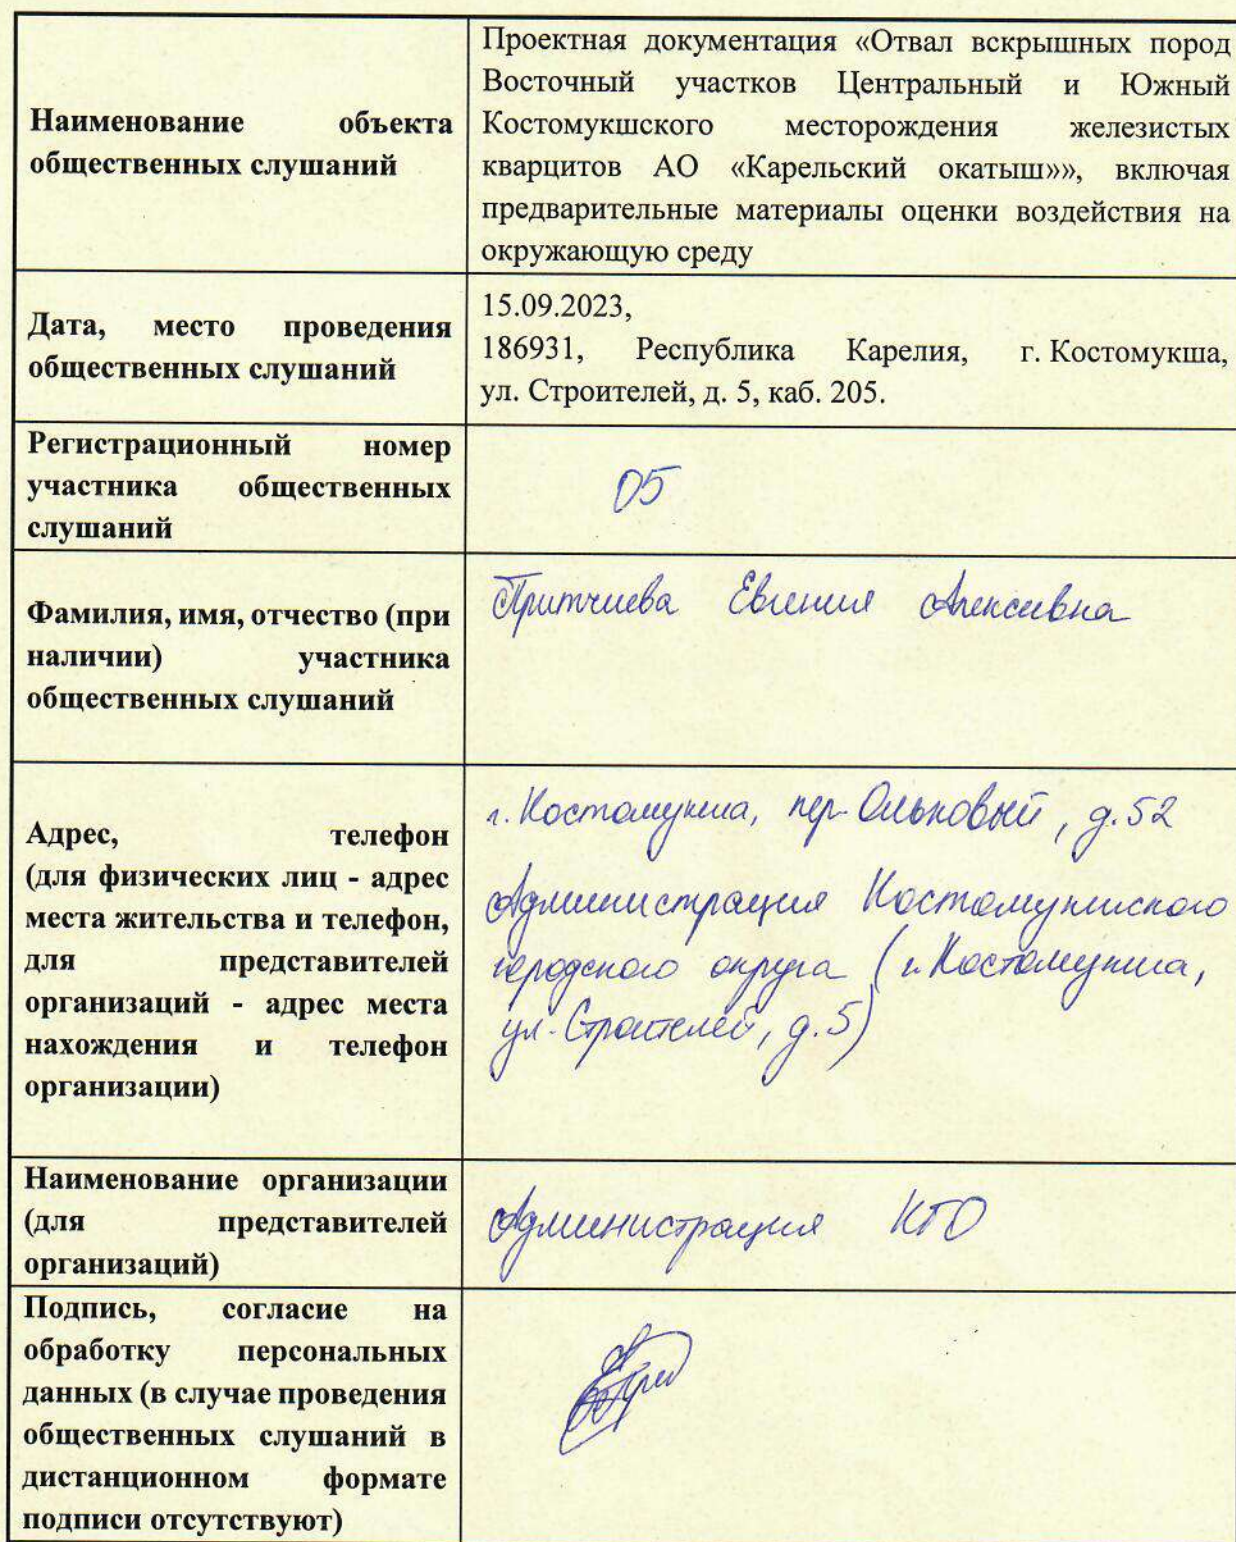 Наименование объекта
общественных слушаний
Проектная документация «Отвал вскрышных пород
Восточный участков Центральный и Южный
Костомукшского месторождения железистых
кварцитов АО «Карельский окатыш»», включая
предварительные материалы оценки воздействия на
окружающую среду
Дата, место проведения
общественных слушаний
15.09.2023,
186931, Республика Карелия, г. Костомукша,
ул. Строителей, д. 5, каб. 205.
Регистрационный номер
участника общественных
слушаний
05
Фамилия, имя, отчество (при
наличии) участника
общественных слушаний
Притчиева Евгения Алексеевна
Адрес, телефон
(для физических лиц - адрес
места жительства и телефон,
для представителей
организаций - адрес места
нахождения и телефон
организации)
г. Костомукша, пер. Ольховый, д. 52
Администрация Костомукшского
городского округа (г. Костомукша,
ул. Строителей, д. 5)
Наименование организации
(для представителей
организаций)
Администрация КГО
Подпись, согласие на
обработку персональных
данных (в случае проведения
общественных слушаний в
дистанционном формате
подписи отсутствуют)